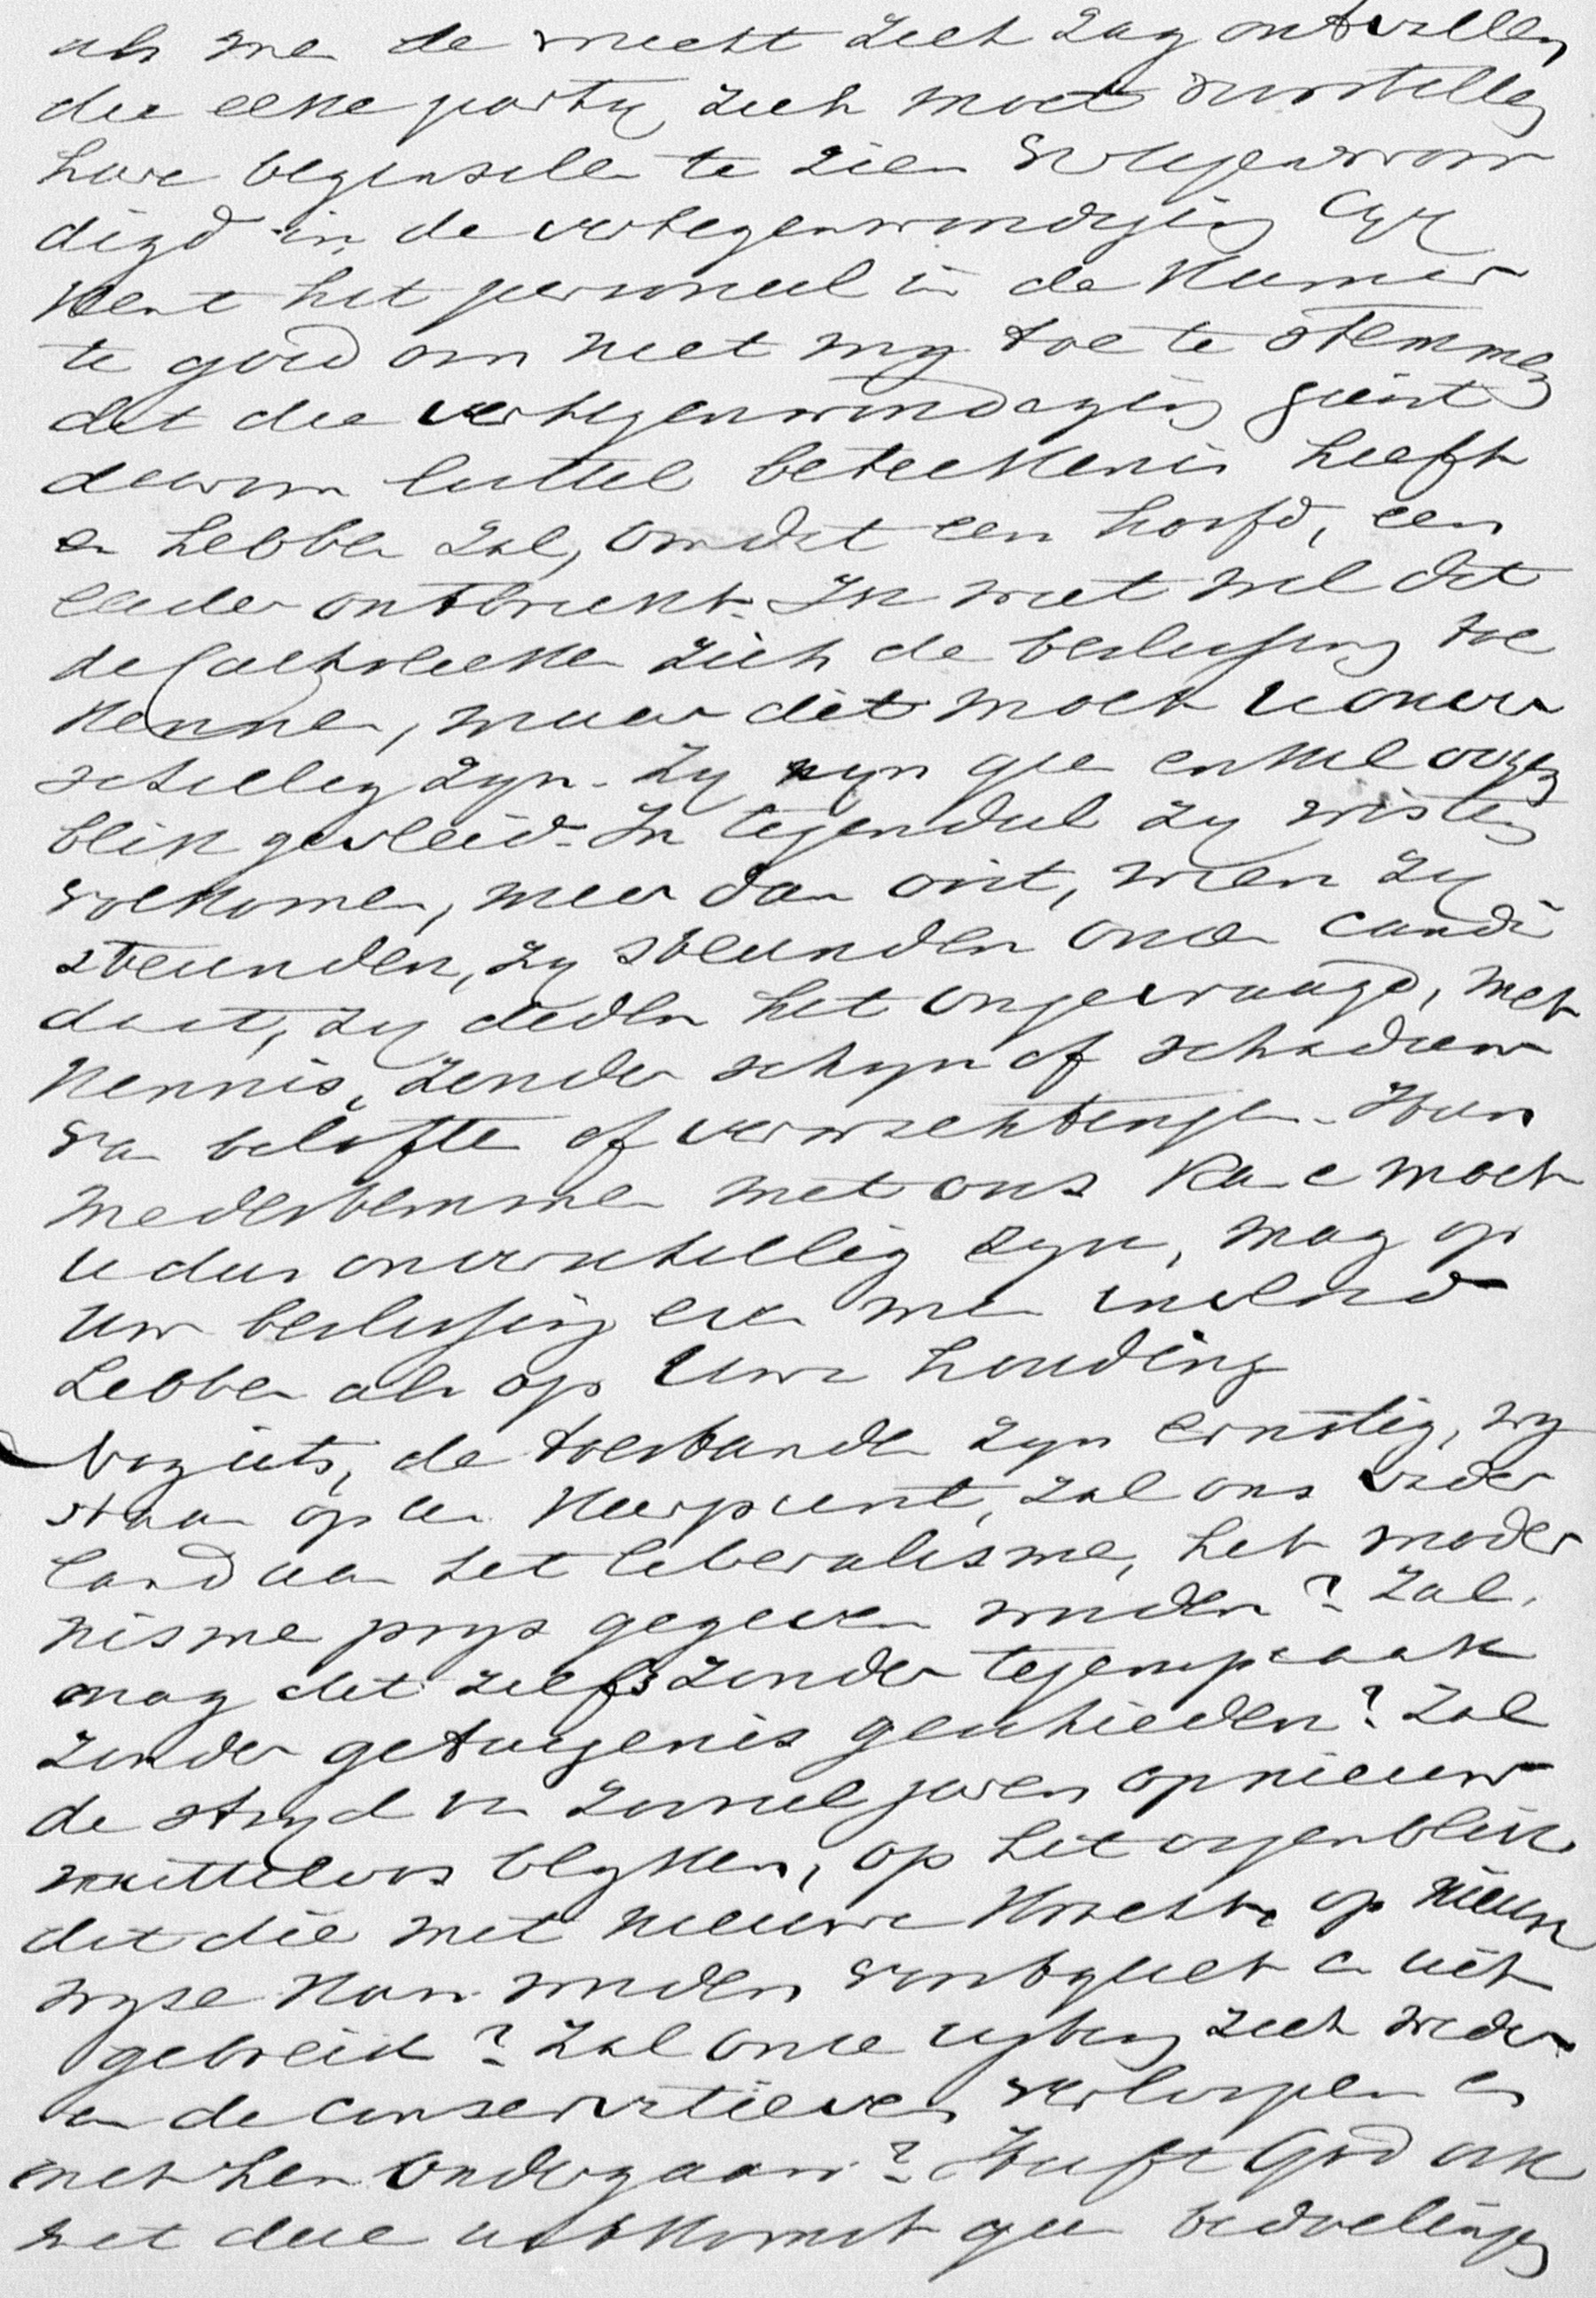 als me de macht zich zag ontvallen
die elke party zich moet voorstellen
hare beginselen te zien vertegenwoor
digd in de vertegenwoordiging Gy
kent het personeel in de Kamer
te goed om niet my toe te stemmen
dat die vertegenwoordiging juist
daarom luttel beteekenis heeft
en hebben zal, omdat een hoofd, een
leider ontbreekt. Ik weet wel dat
de Catholieken zich de beslissing toe
kennen, maar dit moet u onver
schillig zyn. Zy zyn geen enkel oogen
blik gevleid. In tegendeel zy wisten
volkomen, meer dan ooit, wien zy
steunden, zy steunden onzen candi
daat, zy deden het ongevraagd, met
kennis, zonder schyn of schaduw
van belofte of verwachtingen. Hun
medestemmen met ons kan e moet
u dus onverschillig zyn, mag op
uw beslissing even min invloed
hebben als op Uwe houding
Voorzeker, de toestanden zyn ernstig, wy
staan op een Keerpunt, zal ons vader
land aan het liberalisme, het moder
nisme prys gegeven worden? Zal,
mag dit zelfs zonder tegenspraak
zonder getuigenis geschieden? Zal
de stryd van zooveel jaren opnieuw
nutteloos blyken, op het oogenblik
dat die met nieuwe Kracht, op nieuwe
wyze kan worden voortgezet en uit
gebreid? Zal onze party zich weder
in de conservatieven verloopen en
met hen ondergaan? Heeft God ook
met deze uitkomst geen bedoelingen